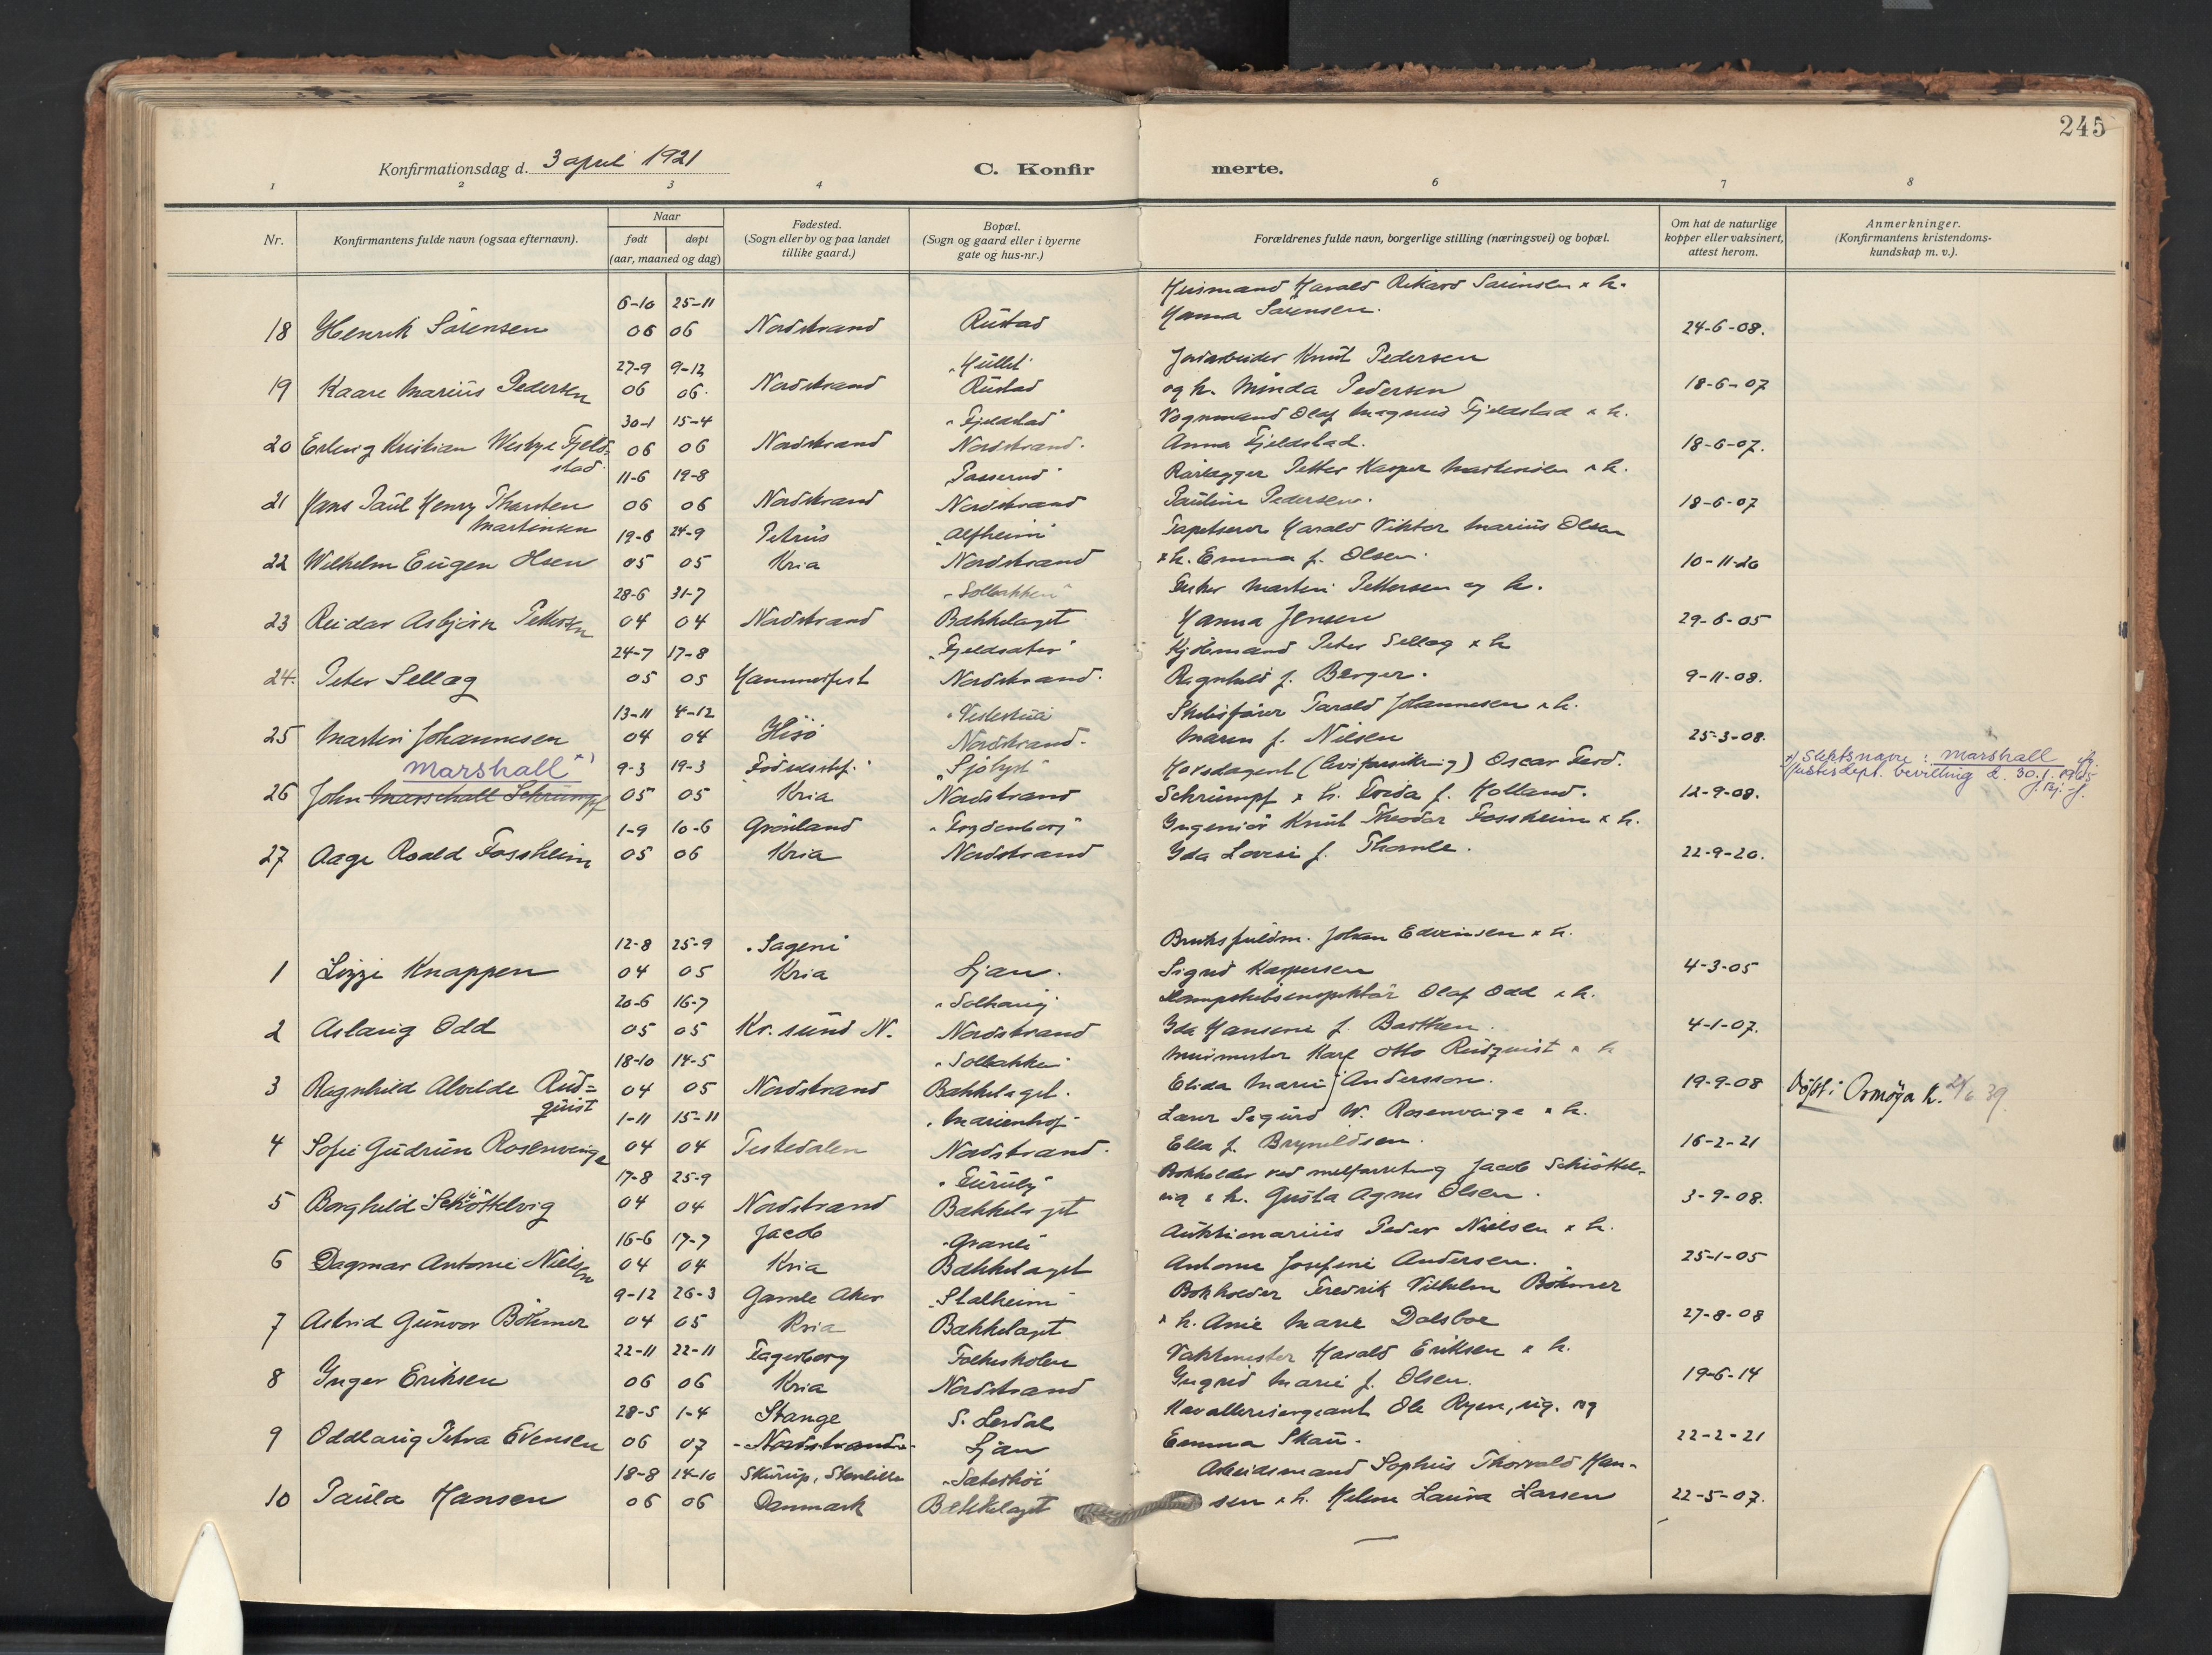 245
Konfirmationsdag d. 3 april 1921
C. Konfir merte.
1 2 3 4 6 7 8
Nr.
Konfirmantens fulde navn (ogsaa efternavn).
Naar
født døpt
(aar, maaned og dag)
Fødested.
(Sogn eller by og paa landet
tillike gaard.)
Bopæl.
(Sogn og gaard eller i byerne
gate og hus-nr.)
Forældrenes fulde navn, borgerlige stilling (næringsvei) og bopæl.
Om hat de naturlige
kopper eller vaksinert,
attest herom.
Anmerkninger.
(Konfirmantens kristendoms-
kundskap m. v.).
6-10 25-11 Husmand Harald Rikard Sørensen & h.
18 Henrik Sørensen 06 06 Nordstrand Rustad Hanna Sørensen. 24-6-08.
27-9 9-12 Jordarbeider Knut Pedersen
19 Kaare Marius Pedersen 06 06. Nordstrand Rustad og h. Minda Pedersen 18-6-07
30-1 15-4 "Fjeldstad" Vognmand Olaf Magnus Fjeldstad & h.
20 Erling Kristian Wesbye Fjeld= 06 06 Nordstrand Nordstrand. Anna Fjeldstad. 18-6-07.
stad. 11-6 19-8 Rørlægger Petter Kasper Martinsen & h.
21 Hans Paul Henry Thorsten 06 06 Nordstrand Nordstrand Pauline Pedersen. 18-6-07
Martinsen 19-6 24-9 Petrus "Alfheim" Tapetserer Harald Viktor Marius Olsen
22 Wilhelm Eugen Olsen 05 05 Kria Nordstrand & h. Emma f. Olsen. 10-11-20
28-6 31-7 "Solbakken" Fisker Martin Pettersen og h.
23 Reidar Asbjørn Pettersen 04 04 Nordstrand Bækkelaget Hanna Jensen 29-6-05
24-7 17-8 "Fjeldsæter" Kjøbmand Peter Sellæg & h
24. Peter Sellæg 05 05 Hammerfest Nordstrand. Ragnhild f. Berger. 9-11-08.
13-11 4-12 Skibsfører Tarald Johannesen & h.
25 Martin Johannesen 04 04 Hisø Nordstrand. Maren f. Nielsen 25-3-08.
Marshall x) 9-3 19-3 Fødselsstif. "Sjølyst" Oscar Ferd. x) Slektsnavn: Marshall ifg.
26 John Marschall Schrumpf 05 05 Kria Nordstrand Schrumpf & h. Frida f. Holland. 12-9-08. Justisdept. bevilling d. 30.1.1965
1-9 10-6 Grønland Ingeniør Knut Theodor Fossheim & h.
27 Aage Roald Fossheim 05 06 Kria Nordstrand Ida Lovise f. Thomle. 22-9-20.
12-8 25-9 "Sagene" Johan Edvinsen & h.
1 Lizzi Knappen 04 05 Kria Ljan. Sigrid Kaspersen 4-3-05
20-6 16-7 "Solhaug" Olaf Odd & h.
2 Aslaug Odd 05 05 Kr. sund N. Nordstrand Ida Hansine f. Barthen. 4-1-07.
18-10 14-5 "Solbakken" Murmester Karl Otto Rudquist & h
3 Ragnhild Alvilde Rud= 04 05 Nordstrand Bækkelaget. Elida Marie Andersson. 19-9-08 Døpt i Ormøya k. 24/6 39.
quist 1-11 15-11 "Marienhof" Lærer Sigurd W. Rosenvinge & h.
4 Sofie Gudrun Rosenvinge 04 04 Nordstrand. Ella f. Brynildsen. 16-2-21
17-8 25-9 "Furuly" Bokholder ved Jacob Schiøttel-
5 Borghild Schiøttelvig 04 04 Nordstrand Bækkelaget vig & h. Gusta Agnes Olsen. 3-9-08.
16-6 17-7 Jacob "Granli" Auktionarius Peder Nielsen & h.
6 Dagmar Antonie Nielsen 04 04 Kria Bækkelaget Antonie Josefine Andersen. 25-1-05
9-12 26-3 Gamle Aker "Stalheim" Bokholder Fredrik Vilhelm Bøhmer
7 Astrid Gunvor Bøhmer 04 05 Kria Bækkelaget & h. Anie Marie Dalsboe 27-8-08
22-11 22-11 Fagerborg Folkeskolen Vaktmester Harald Eriksen & h.
8 Inger Eriksen 06 06 Kria Nordstrand Ingrid Marie f. Olsen. 19-6-14
28-5 1-4 Stange S. Lerdal Kavallerisergeant Ole Ryen, ug. og
9 Oddlaug Petra Evensen 06 07 Nordstrand Ljan Emma Skau. 22-2-21
18-8 14-10 Skurup, Stenlille Arbeidsmand Sophus Thorvald Han-
10 Paula Hansen 06 06 Danmark Bækkelaget sen & h. Helene Laura Larsen 22-5-07.